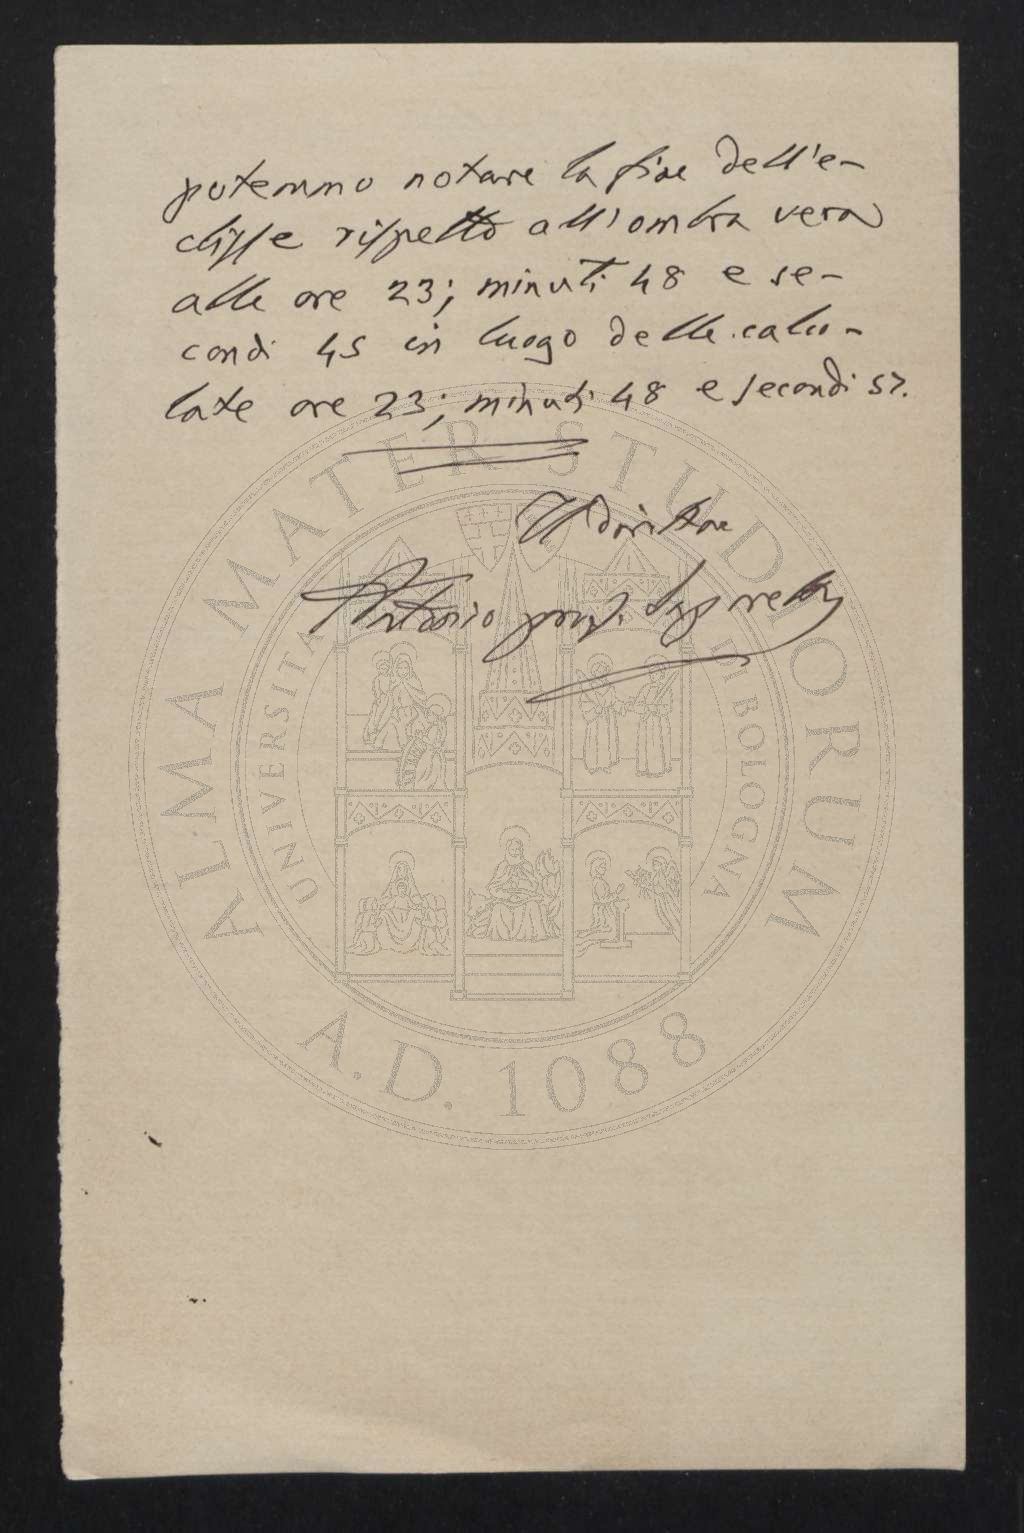 potemmo notare la fine dell'e-
clisse rispetto all'ombra vera
alle ore 23; minuti 48 e se-
condi 45 in luogo delle calco-
late ore 23; minuti 48 e secondi 57.
Il direttore
Antonio prof.
ALMA MATER STUDIORUM
UNIVERSITA DI BOLOGNA
A.D. 1088